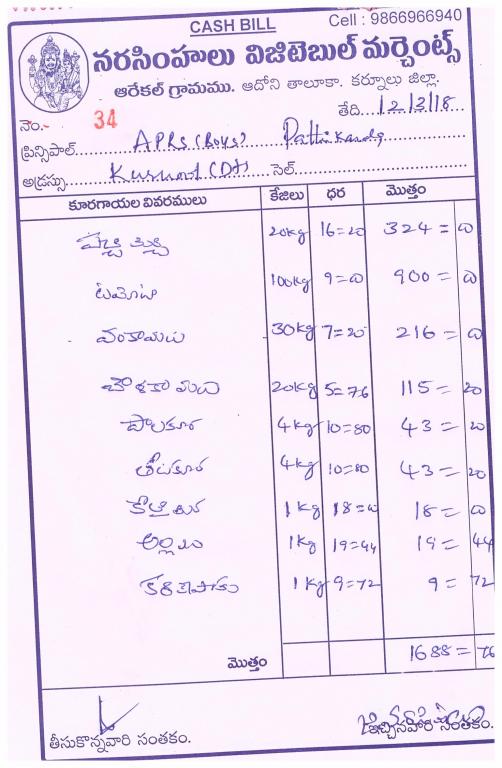 CASH BILL
Cell : 9866966940
నరసింహులు విజిటెబుల్ మర్చెంట్స్
ఆరేకల్ గ్రామము. ఆదోని తాలూకా. కర్నూలు జిల్లా.
నెం:- 34 తేది...12/2/18
ప్రిన్సిపాల్...APRS (Boys) Pattikonda
అడ్రస్సు...Kurnool (Dt) సెల్
కూరగాయల వివరములు కేజీలు ధర మొత్తం
పచ్చి మిర్చి 20kg 16=20 324=00
టమోటా 100kg 9=00 900=00
వంకాయలు 30kg 7=20 216=00
చౌళకాయలు 20kg 5=76 115=20
పాలకూర 4kg 10=80 43=20
4kg 10=80 43=20
కొత్తిమీర 1kg 18=00 18=00
అల్లం 1kg 19=44 19=44
కరివేపాకు 1kg 9=72 9=72
మొత్తం 1688=76
తీసుకొన్నవారి సంతకం. ఇచ్చినవారి సంతకం.